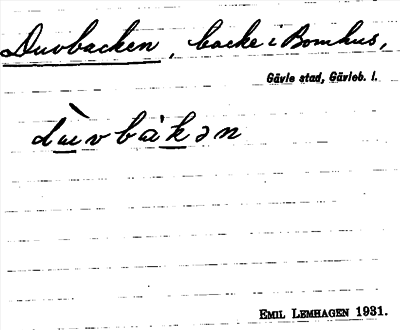 Duvbacken, backe i Bomhus,
Gävle stad, Gävleb. l.
dùvbákən
EMIL LEMHAGEN 1931.